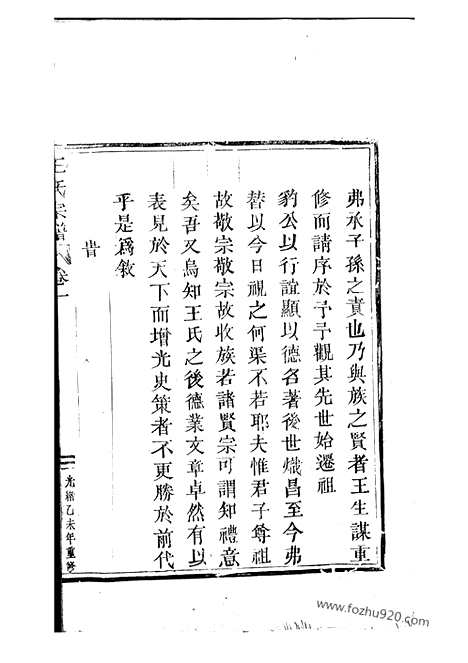 弗承子孫之責也乃與族之賢者王生謀重
修而請序於予予觀其先世始遷祖
豹公以行誼顯以德名著後世熾昌至今弗
替以今日視之何渠不若耶夫惟君子尊祖
故敬宗敬宗故收族若諸賢宗可謂知禮意
矣吾又烏知王氏之後德業文章卓然有以
表見於天下而增光史策者不更勝於前代
乎是為敘
昔
王氏宗譜
卷一
光緒乙未年重修
www.fozhu920.com